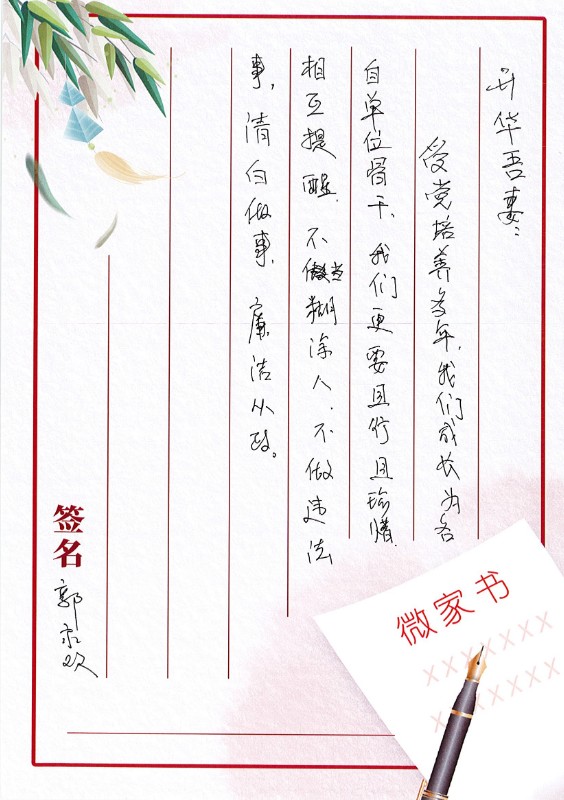 升华吾妻：
受党培养多年，我们成长为各
自单位骨干、我们更要且行且珍惜，
相互提醒，不做当糊涂人，不做违法
事，清白做事，廉洁从政。
签名
微家书
XXXXXXX
XXXXXXX